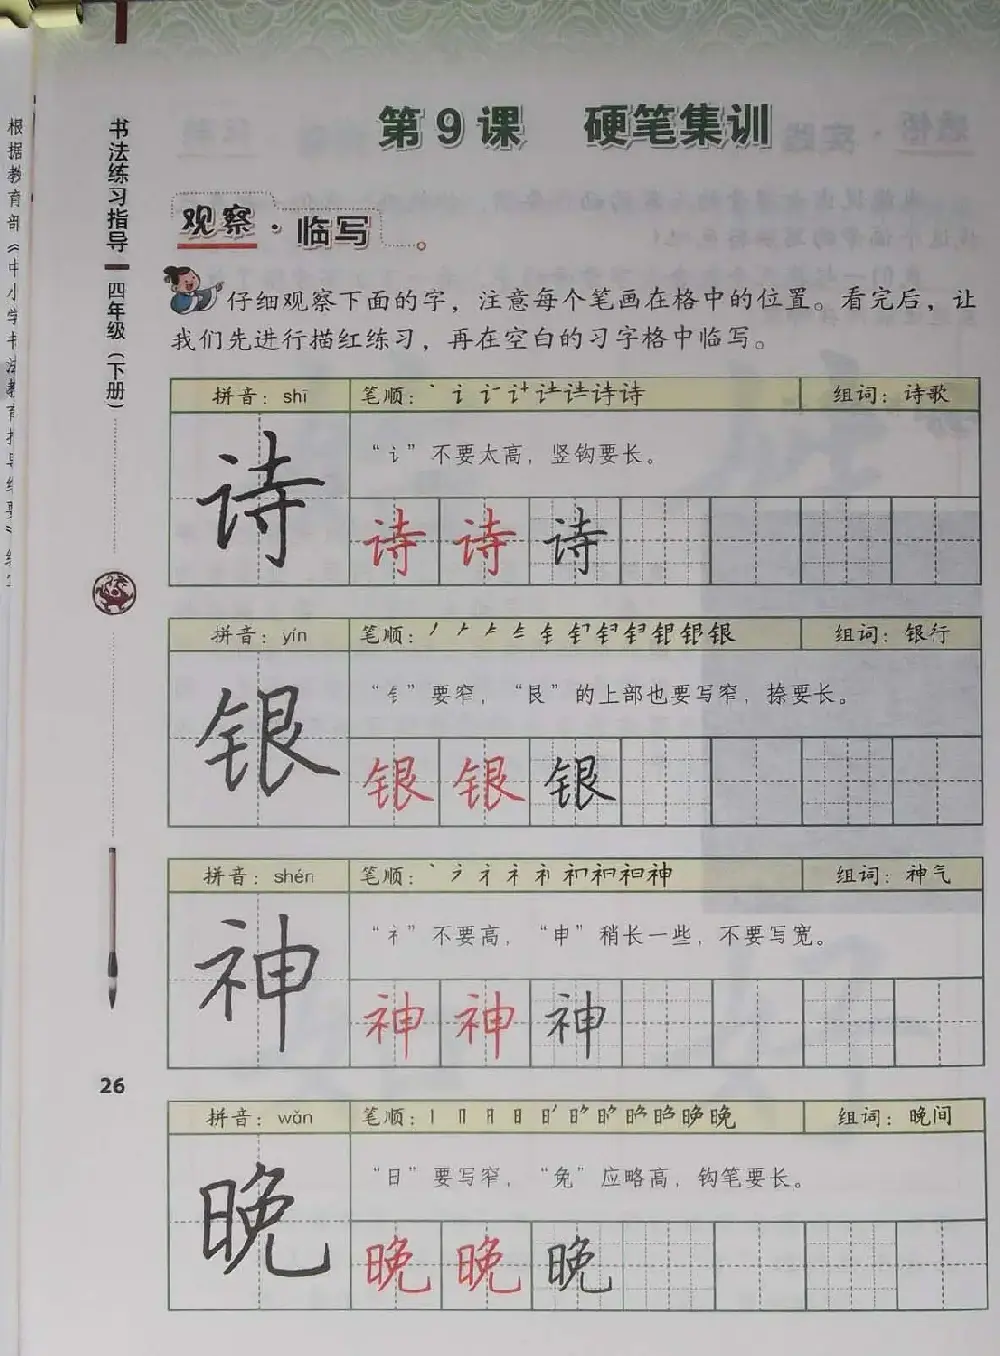 第9课 硬笔集训
观察·临写
仔细观察下面的字，注意每个笔画在格中的位置。看完后，让
我们先进行描红练习，再在空白的习字格中临写。
拼音：shī 笔顺： 组词：诗歌
诗
“讠”不要太高，竖钩要长。
诗 诗 诗
拼音：yín 笔顺： 组词：银行
银
“钅”要窄，“艮”的上部也要写窄，捺要长。
银 银 银
拼音：shén 笔顺： 组词：神气
神
“礻”不要高，“申”稍长一些，不要写宽。
神 神 神
拼音：wǎn 笔顺： 组词：晚间
晚
“日”要写窄，“免”应略高，钩笔要长。
晚 晚 晚
书法练习指导 四年级（下册）
26
根据教育部《中小学书法教育指导纲要》